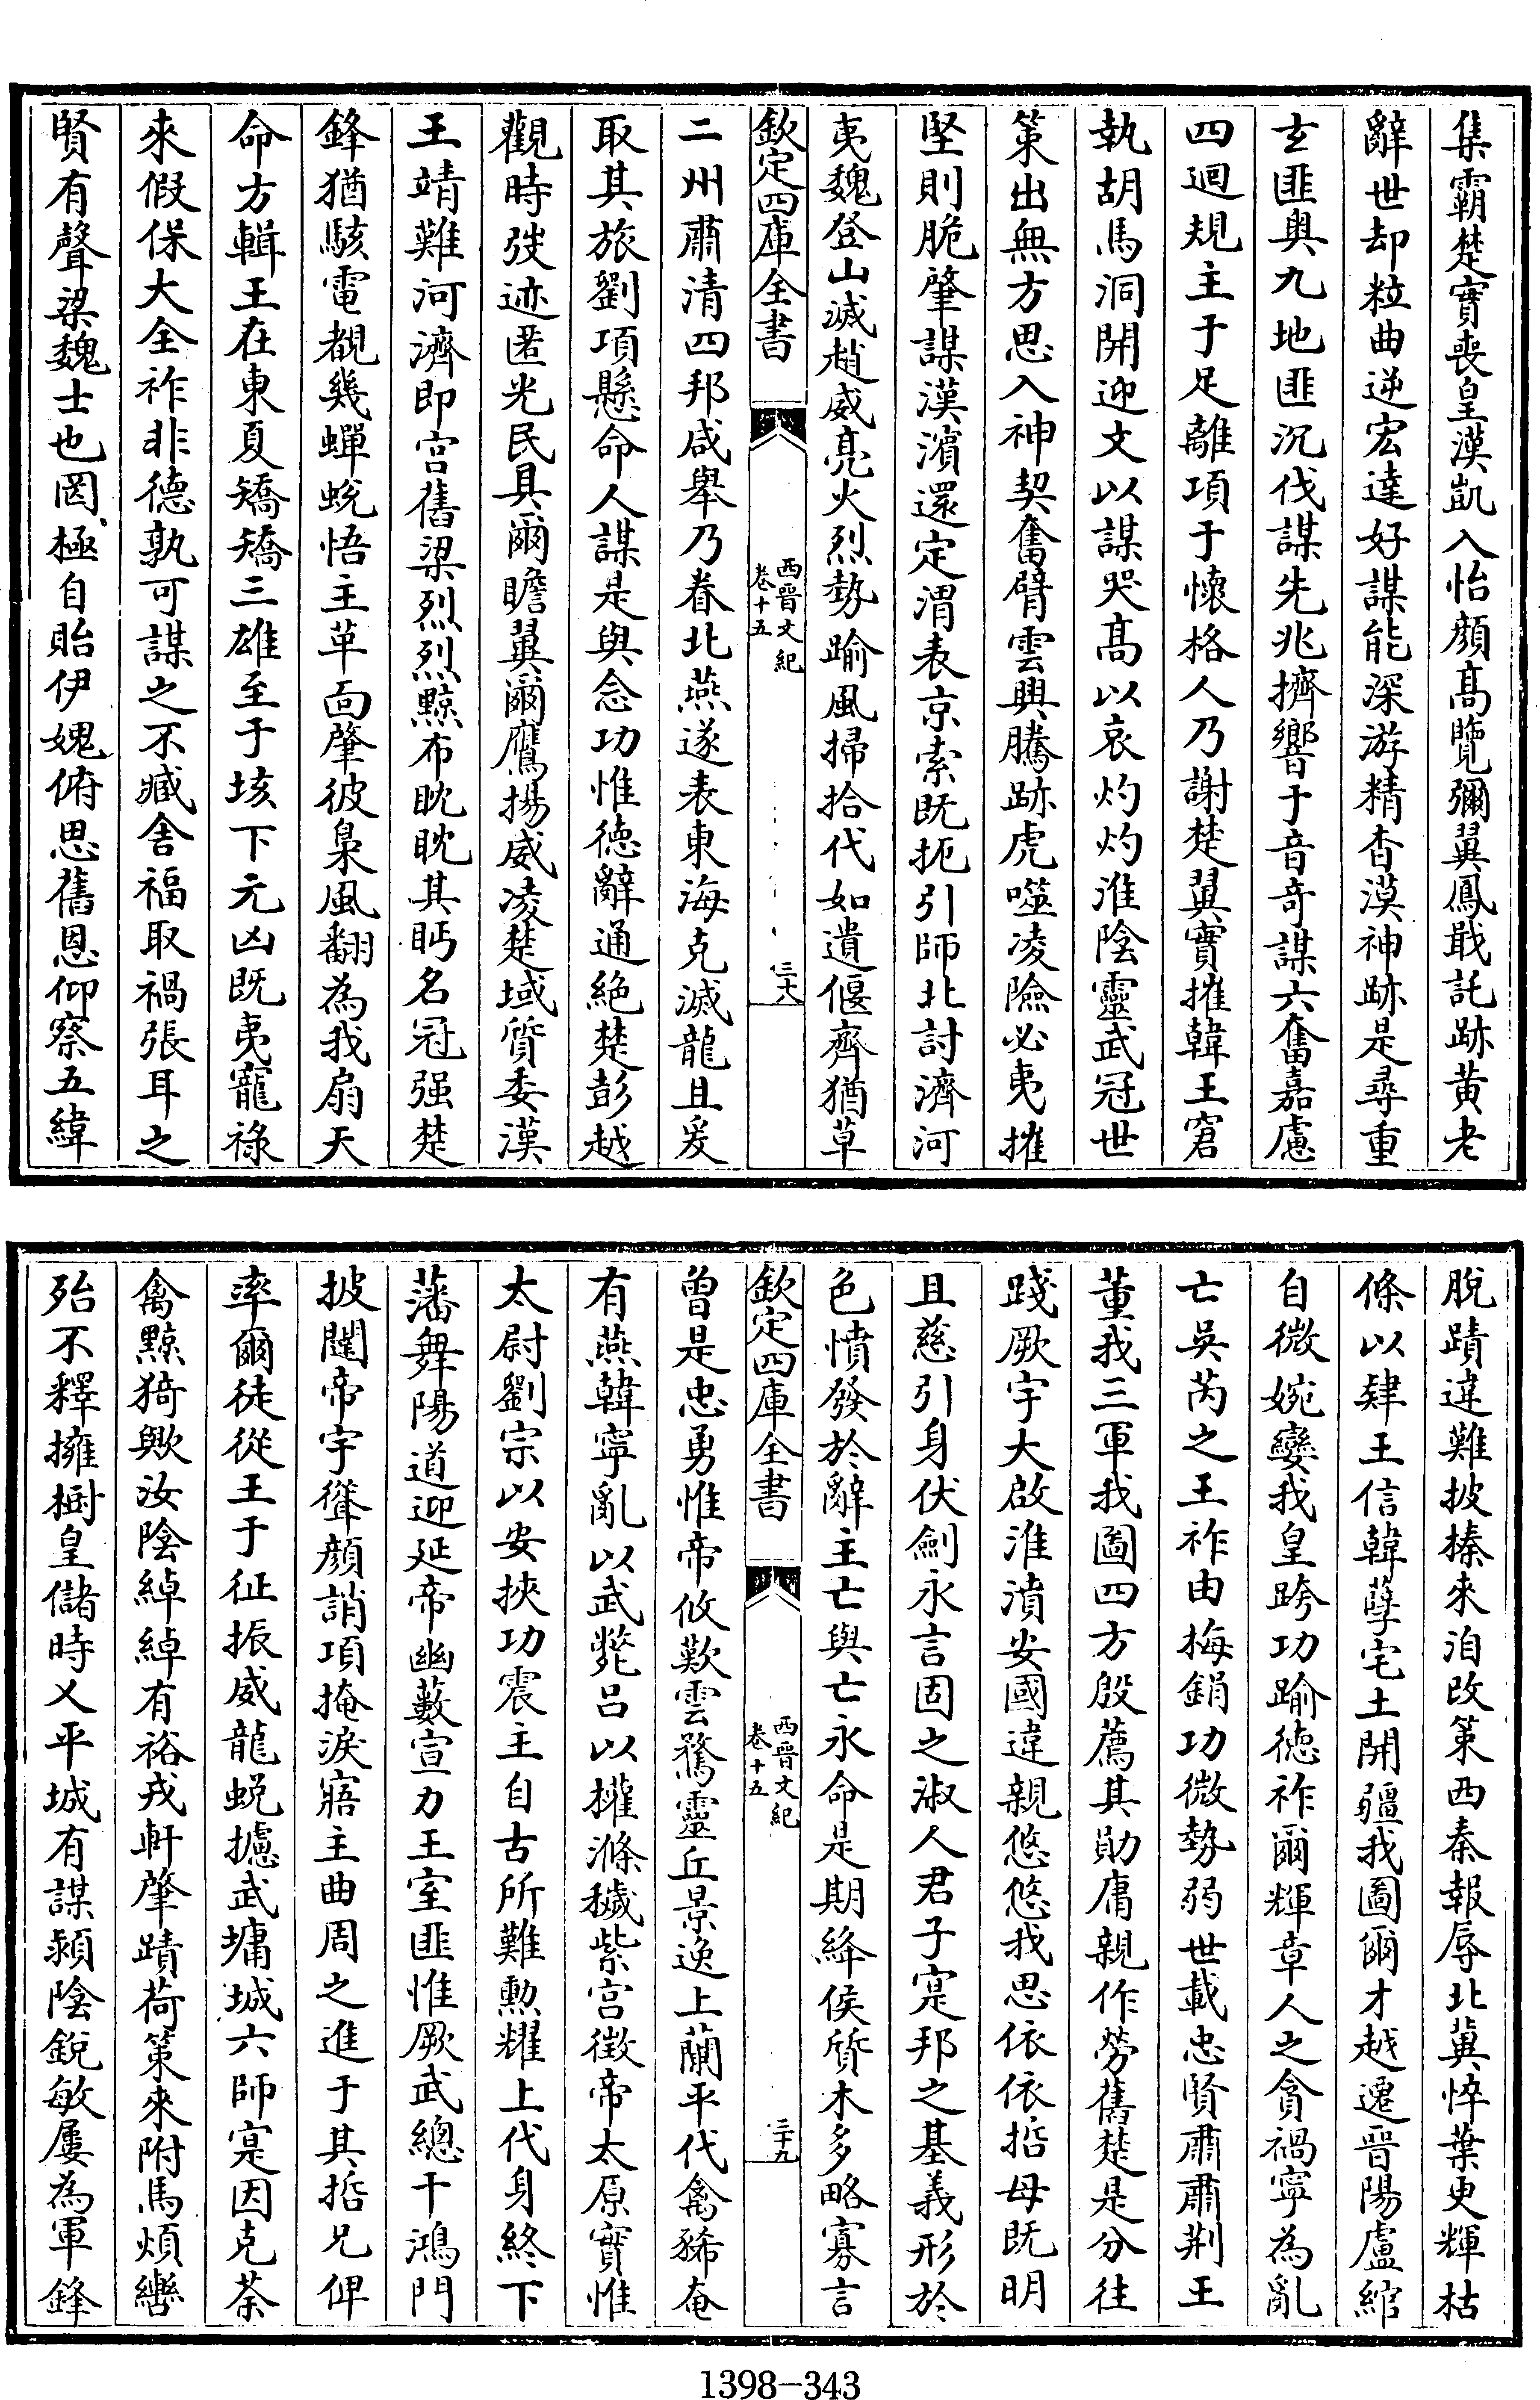 集霸楚實喪皇漢凱入怡顔髙覽彌翼鳳戢託跡黃老
辭世却粒曲逆宏達好謀能深游精杳漠神跡是尋重
玄匪奥九地匪沉伐謀先兆擠響于音奇謀六奮嘉慮
四迴規主于足離項于懷格人乃謝楚翼實摧韓王窘
執胡馬洞開迎文以謀哭髙以哀灼灼淮陰靈武冠世
策出無方思入神契奮臂雲興騰跡虎噬凌險必夷摧
堅則脆肇謀漢濱還定渭表京索既扼引師北討濟河
夷魏登山滅趙威亮火烈勢踰風掃拾代如遺偃齊猶草
欽定四庫全書
西晉文紀
卷十五
三十八
二州肅清四邦咸舉乃眷北燕遂表東海克滅龍且爰
取其旅劉項懸命人謀是與念功惟德辭通絶楚彭越
觀時弢迹匿光民具爾瞻翼爾鷹揚威凌楚域質委漢
王靖難河濟即宫舊梁烈烈黥布眈眈其眄名冠强楚
鋒猶駭電覩幾蟬蛻悟主革面肇彼梟風翻為我扇天
命方輯王在東夏矯矯三雄至于垓下元凶既夷寵祿
來假保大全祚非德孰可謀之不臧舍福取禍張耳之
賢有聲梁魏士也罔極自貽伊媿俯思舊恩仰察五緯
脫蹟違難披榛來洎改策西秦報辱北冀悴葉更輝枯
條以肄王信韓孽宅土開疆我圖爾才越遷晉陽盧綰
自微婉孌我皇跨功踰德祚爾輝章人之貪禍寧為亂
亡吳芮之王祚由梅鋗功微勢弱世載忠賢肅肅荆王
董我三軍我圖四方殷薦其勛庸親作勞舊楚是分往
踐厥宇大啟淮濆安國違親悠悠我思依依哲母既明
且慈引身伏劍永言固之淑人君子寔邦之基義形於
色憤發於辭主亡與亡永命是期絳侯質木多略寡言
欽定四庫全書
西晉文紀
卷十五
三十九
曾是忠勇惟帝攸歎雲騖靈丘景逸上蘭平代禽豨奄
有燕韓寧亂以武斃吕以權滌穢紫宫徵帝太原實惟
太尉劉宗以安挾功震主自古所難勲耀上代身終下
藩舞陽道迎延帝幽藪宣力王室匪惟厥武總干鴻門
披闥帝宇聳顔誚項掩淚寤主曲周之進于其哲兄俾
率爾徒從王于征振威龍蛻攄武墉城六師寔因克荼
禽黥猗歟汝陰綽綽有裕戎軒肇蹟荷策來附馬煩轡
殆不釋擁樹皇儲時乂平城有謀潁陰銳敏屢為軍鋒
1398-343